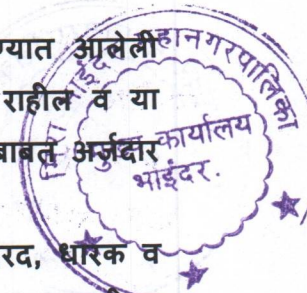 ण्यात आलेली
राहील व या
बाबत अर्जदार
रद, धारक व
भाईंदर महानगरपालिका
मुख्य कार्यालय
भाईंदर.